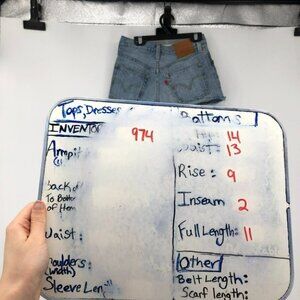 Tops, Dresses
Bottoms
INVENTOR 974
Hip: 14
Armpit
Waist: 13
Rise: 9
Back of
To Bottom
of Hem
Inseam 2
Waist:
Full Length: 11
Shoulders:
(width)
Other
Sleeve Len
Belt Length:
Scarf length: